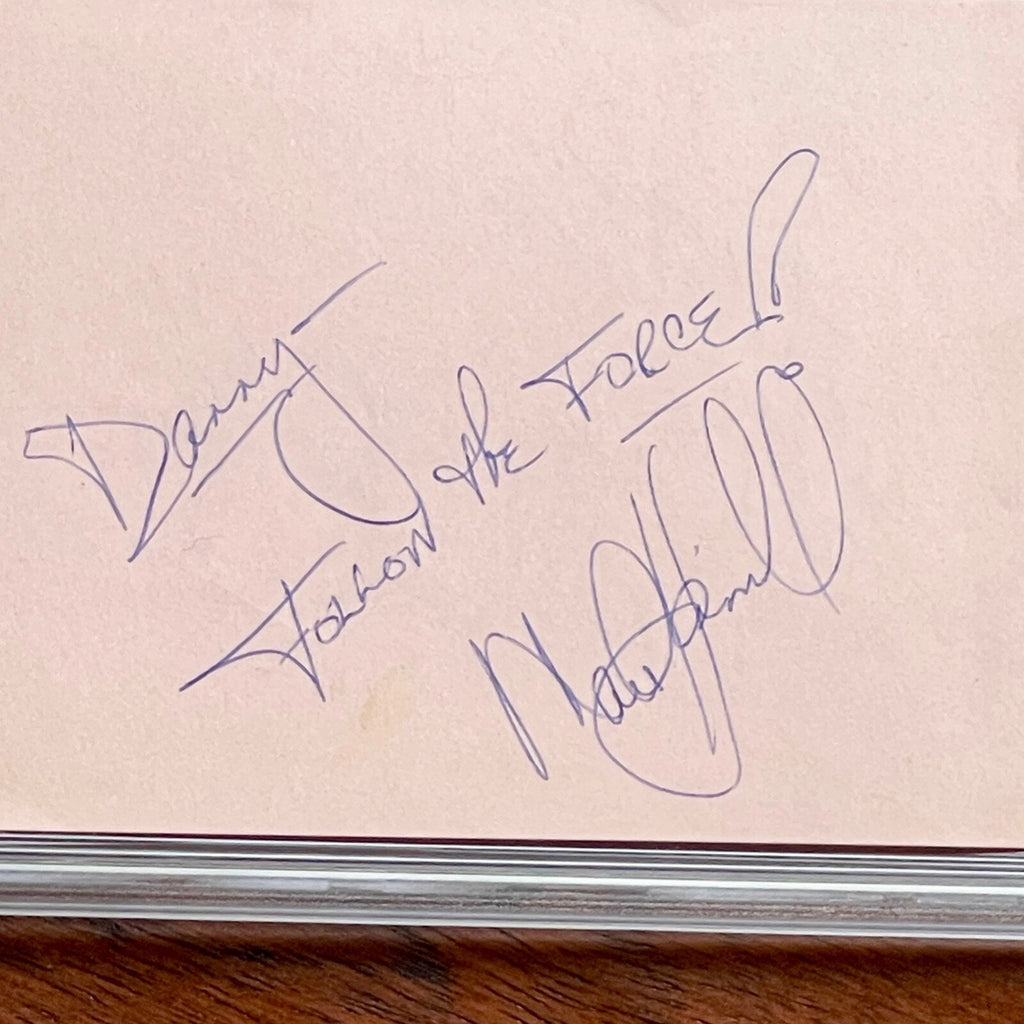 Danny
Follow the FORCE!
Mark Hamill